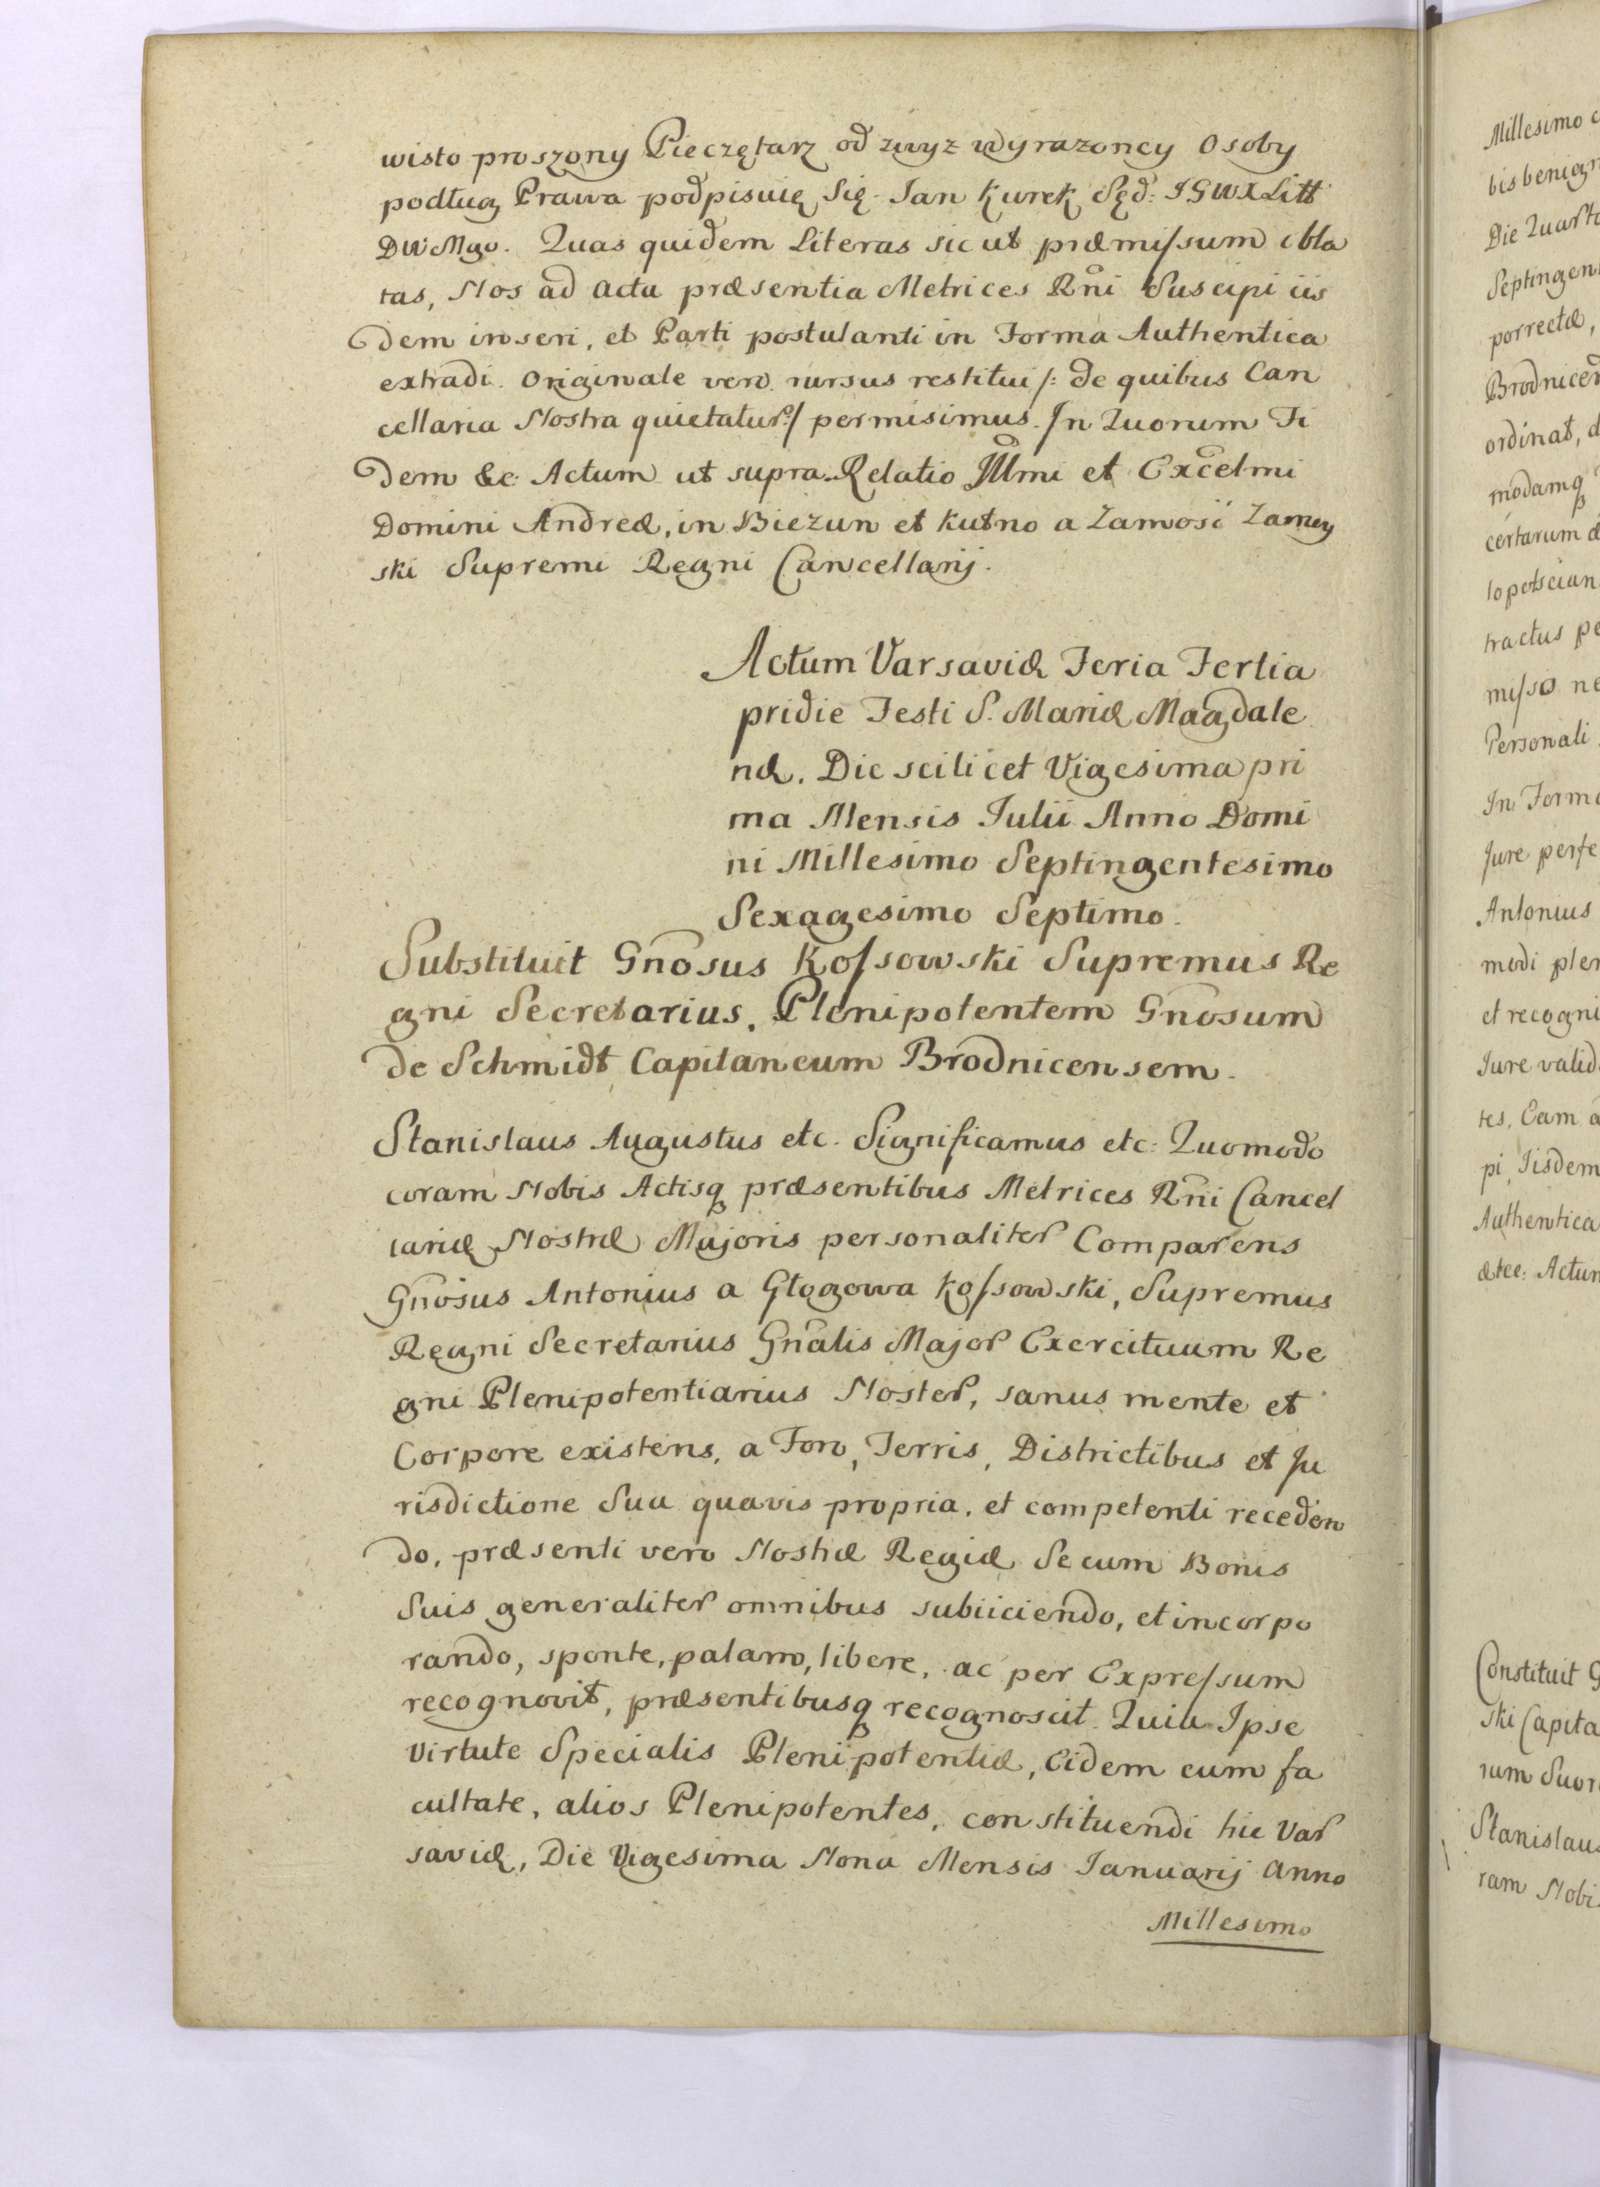 wisto proszony Pieczętarz od zwyz wyrazoney Osoby
podług Prawa podpisuię Się. Jan Kurek Sęd: JGWXLitt
DWMgo. Quas quidem Literas sic ut præmissum obla
tas, Nos ad Acta præsentia Metrices Rni Suscipi iis
dem inseri, et Parti postulanti in Forma Authentica
extradi. Originale vero rursus restitui /: de quibus Can
cellaria Nostra quietatur :/ permisimus. In Quorum Fi
dem &c: Actum ut supra. Relatio Illmi et Excelmi
Domini Andreæ, in Biezun et Kutno a Zamosć Zamoy
ski Supremi Regni Cancellarij.
Actum Varsaviæ Feria Tertia
pridie Festi S. Mariæ Magdale
næ. Die scilicet Vigesima pri
ma Mensis Julii Anno Domi
ni Millesimo Septingentesimo
Sexagesimo Septimo.
Substituit Gnosus Kossowski Supremus Re
gni Secretarius, Plenipotentem Gnosum
de Schmidt Capitaneum Brodnicensem.
Stanislaus Augustus etc. Significamus etc: Quomodo
coram Nobis Actisq præsentibus Metrices Rni Cancel
lariæ Nostræ Majoris personaliter Comparens
Gnosus Antonius a Głogowa Kossowski, Supremus
Regni Secretarius Gnalis Major Exercituum Re
gni Plenipotentiarius Noster, sanus mente et
Corpore existens, a Foro, Terris, Districtibus et Ju
risdictione Sua quavis propria, et competenti receden
do, præsenti vero Nostræ Regiæ Se cum Bonis
Suis generaliter omnibus subiiciendo, et incorpo
rando, sponte, palam, libere, ac per Expressum
recognovit, præsentibusq recognoscit. Quia Ipse
Virtute Specialis Plenipotentiæ, Eidem cum fa
cultate, alios Plenipotentes, constituendi hic Var
saviæ, Die Vigesima Nona Mensis Januarij Anno
Millesimo
Millesimo
Die Quart
Septingen
porrectæ,
Brodnicen
ordinat, d
modamq
certarum
tractus pe
misso ne
Personali
In Forma
Jure perfe
Antonius
modi plen
et recogni
Jure valid
tes, Eam a
pi, Iisdem
Authentica
etcc: Actum
Constituit G
ski Capita
rum Suor
Stanislaus
ram Nobi